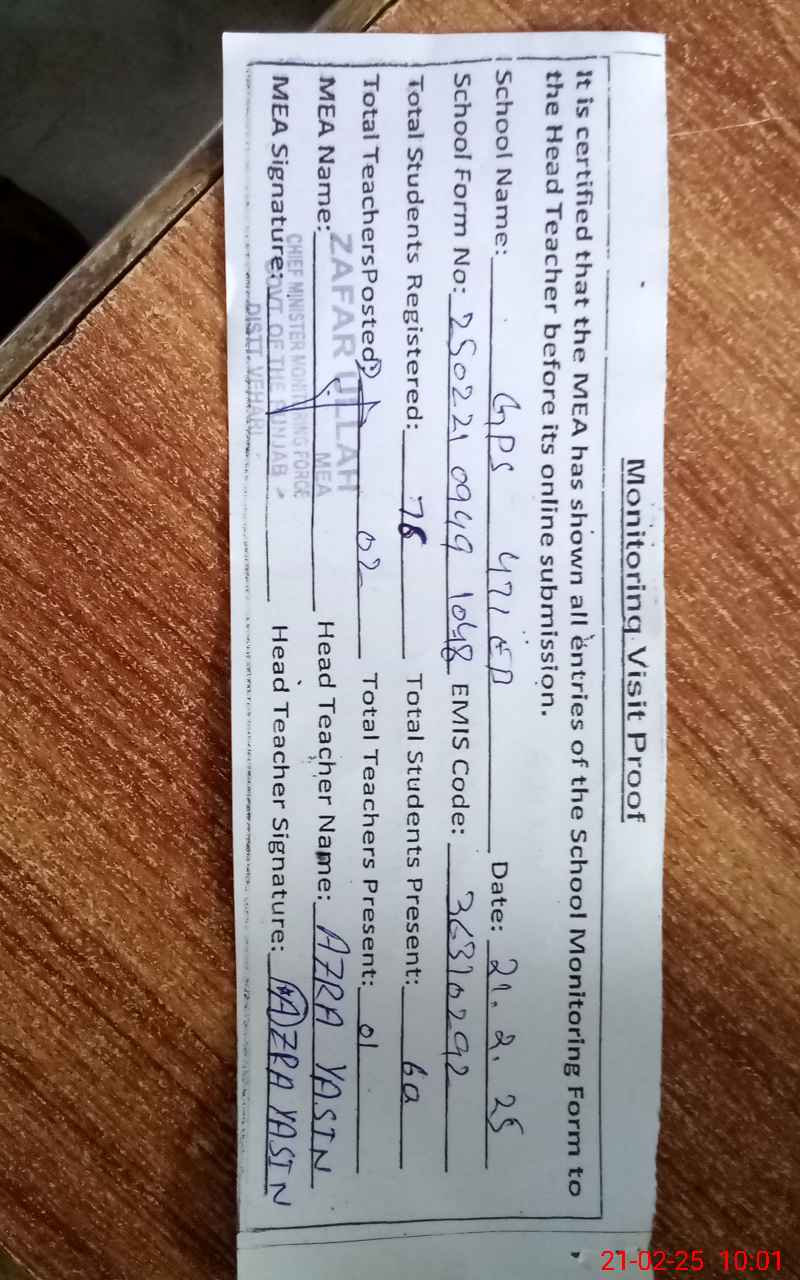 Monitoring Visit Proof
It is certified that the MEA has shown all entries of the School Monitoring Form to
the Head Teacher before its online submission.
School Name: GPS 471 EB Date: 21.2.25
School Form No: 250221 0949 1048 EMIS Code: 36310292
Total Students Registered: 78 Total Students Present: 60
Total Teachers Posted: 02 Total Teachers Present: 01
MEA Name: ZAFAR ULLAH Head Teacher Name: AZRA YASIN
MEA
CHIEF MINISTER MONITORING FORCE
MEA Signature: GOVT OF THE PUNJAB Head Teacher Signature: AZRA YASIN
DISTT VEHARI
21-02-25 10:01